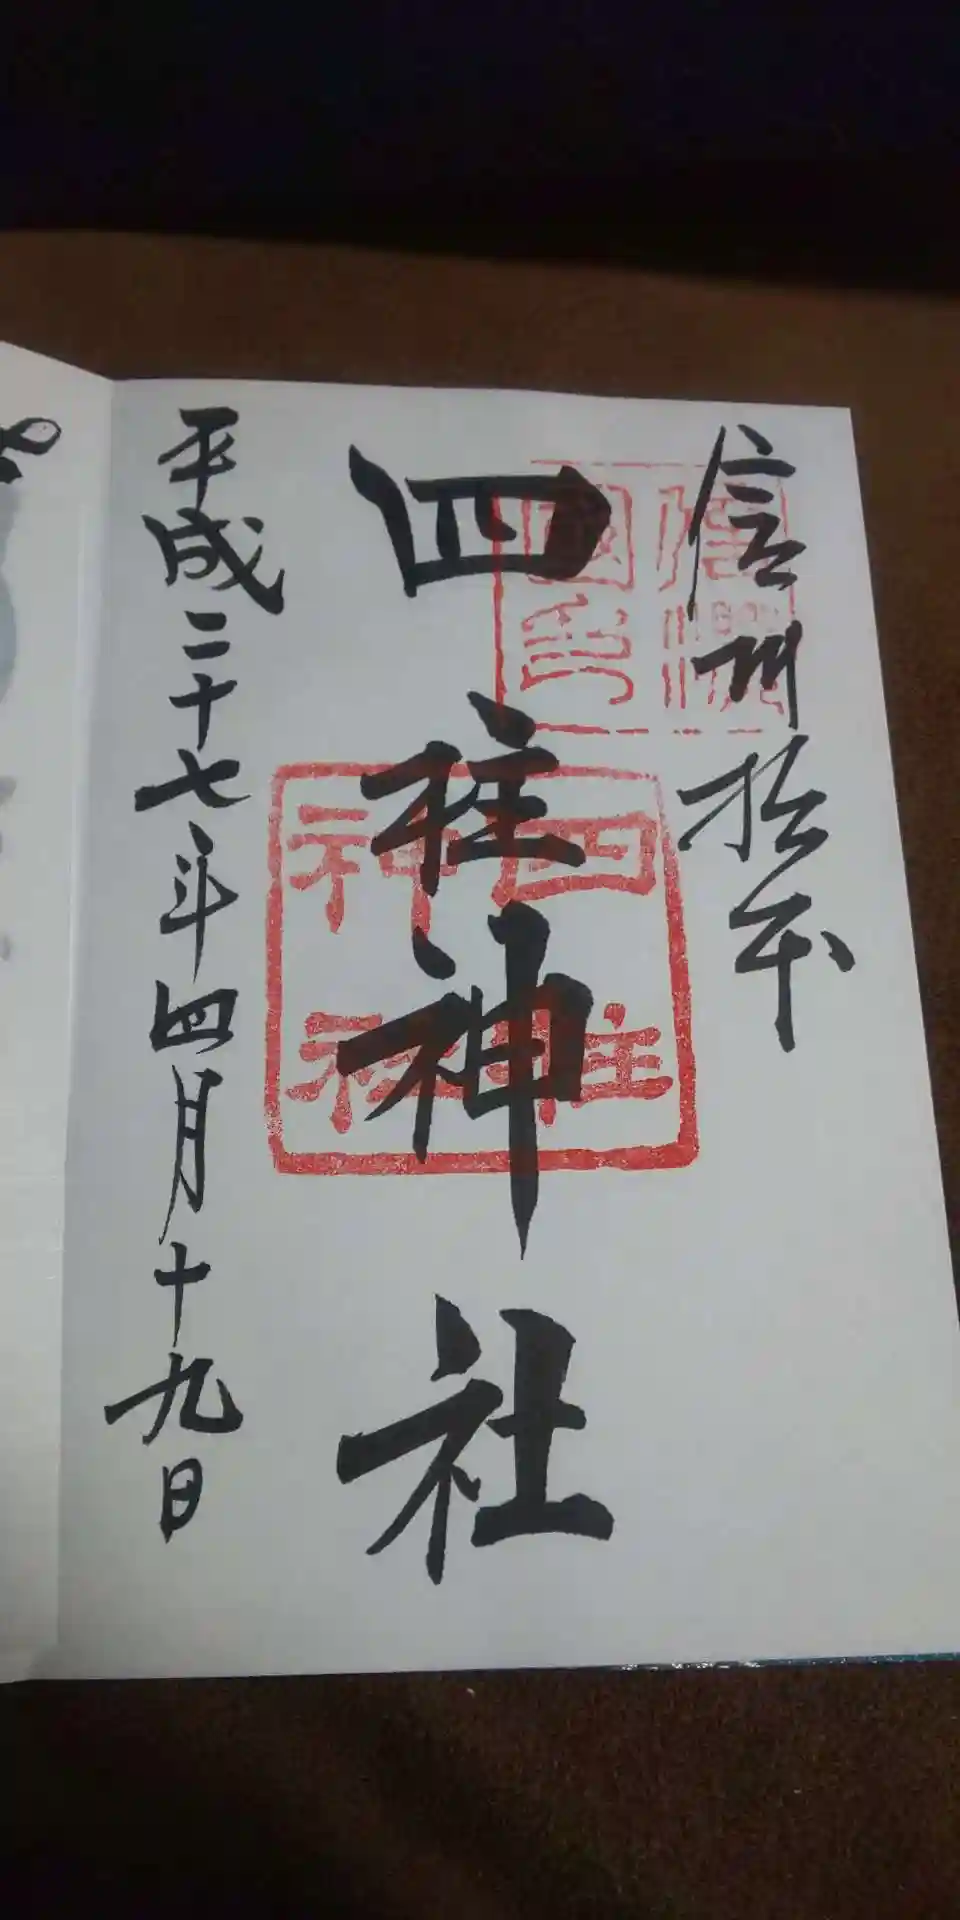 信州松本
信濃國印
四柱神社
四柱神社
平成二十七年四月十九日